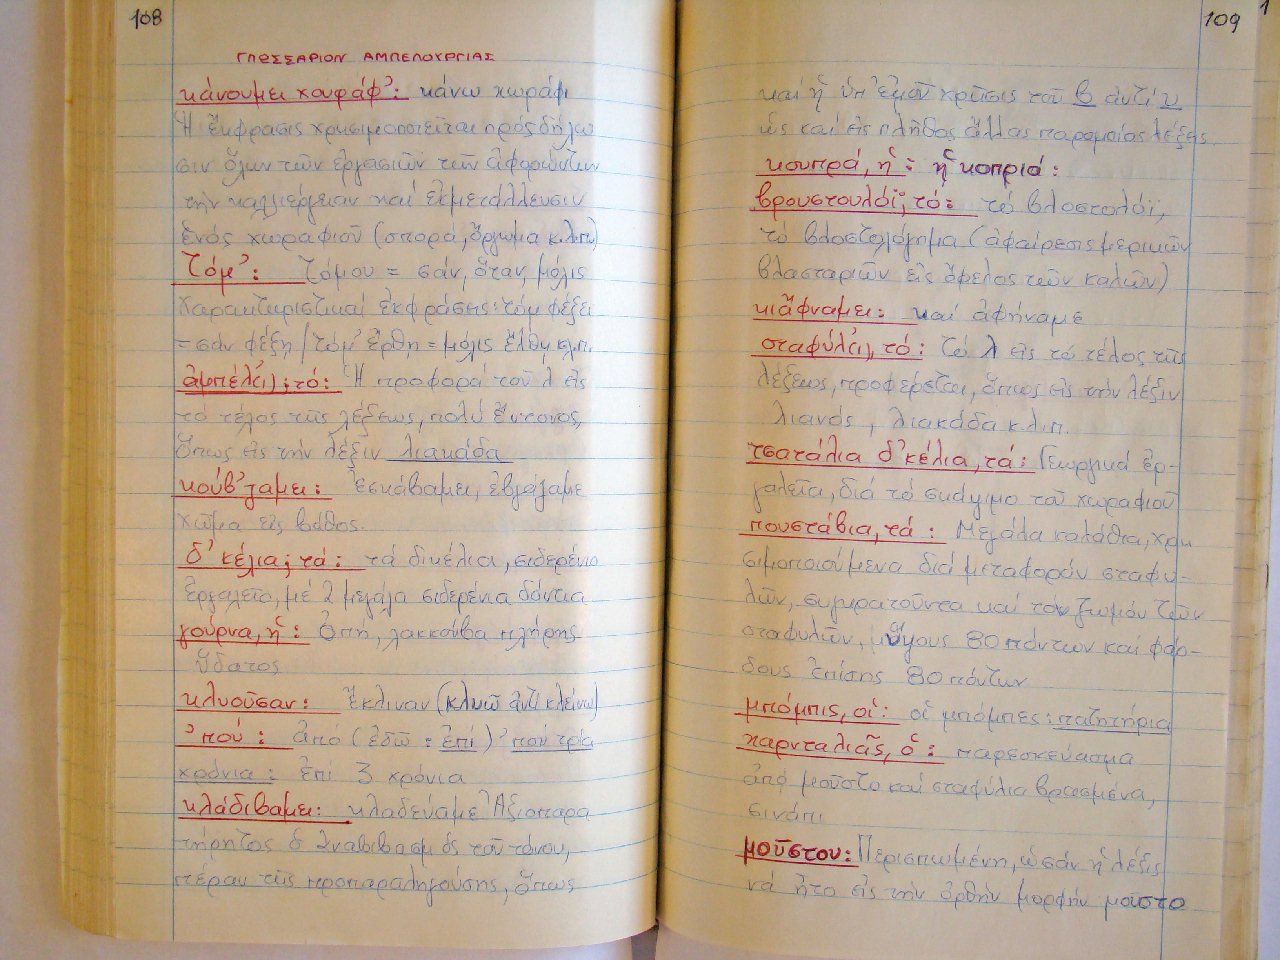 108
ΓΛΩΣΣΑΡΙΟΝ ΑΜΠΕΛΟΥΡΓΙΑΣ
κάνουμει χουράφ': κάνω χωράφι
Ἡ ἔκφρασις χρησιμοποιεῖται πρός δήλω
σιν ὅλων τῶν ἐργασιῶν τῶν ἀφορώντων
τήν καλλιέργειαν καί ἐκμετάλλευσιν
ἑνός χωραφιοῦ (σπορά, ὄργωμα κ.λ.π)
τόμ': τόμου = σάν, ὅταν, μόλις
Χαρακτηριστικαί ἐκφράσεις: τόμ φέξει
= σάν φέξη / τόμ' ἔρθη = μόλις ἔλθη κ.λ.π.
ἀμπέλ(ι); τό: Ἡ προφορά τοῦ λ εἰς
τό τέλος τῆς λέξεως, πολύ ἔντονος,
ὅπως εἰς τήν λέξιν λιακάδα
κούβ'γαμει: Ἐσκάβαμει, ἐβγάζαμε
χῶμα εἰς βάθος.
δ'κέλια; τά: τά δικέλια, σιδερένιο
ἐργαλεῖο, μέ 2 μεγάλα σιδερένια δόντια
γούρνα, ἡ: Ὀπή, λακκούβα πλήρης
ὕδατος
κλυοῦσαν: Ἔκλιναν (κλυῶ ἀντί κλείνω)
'πού: ἀπό (ἐδῶ: ἐπί) 'πού τρία
χρόνια: ἐπί 3 χρόνια
κλάδιβαμει: κλαδεύαμε Ἀξιοπαρα
τήρητος ὁ ἀναβιβασμός τοῦ τόνου,
πέραν τῆς προπαραληγούσης, ὅπως
109
καί ἡ ὑπ' ἐμοῦ χρῆσις τοῦ β ἀντί υ
ὡς καί εἰς πλῆθος ἄλλας παρομοίας λέξεις.
κουπρά, ἡ: ἡ κοπριά:
βρουστουλόϊ; τό: τό βλοστολόϊ,
τό βλοστολόγημα (ἀφαίρεσις μερικῶν
βλασταριῶν εἰς ὄφελος τῶν καλῶν)
κιἄφναμει: καί ἀφήναμε
σταφύλ(ι), τό: τό λ εἰς τό τέλος τῆς
λέξεως, προφέρεται, ὅπως εἰς τήν λέξιν
λιανός, λιακάδα κ.λ.π.
τσατάλια δ'κέλια, τά: Γεωργικά ἐρ-
γαλεῖα, διά τό σκάψιμο τοῦ χωραφιοῦ
πουστάβια, τά: Μεγάλα καλάθια, χρη
σιμοποιούμενα διά μεταφοράν σταφυ-
λῶν, συγκρατοῦντα καί τόν ζωμόν τῶν
σταφυλῶν, ὕψους 80 πόντων καί φάρ-
δους ἐπίσης 80 πόντων
μπόμπις, οἱ: οἱ μπόμπες: πατητήρια
καρνταλιᾶς, ὁ: παρεσκεύασμα
ἀπό μοῦστο καί σταφύλια βρασμένα,
σινάπι
μοῦστου: Περισπωμένη, ὡσάν ἡ λέξις
νά ἦτο εἰς τήν ὀρθήν μορφήν μοῦστο